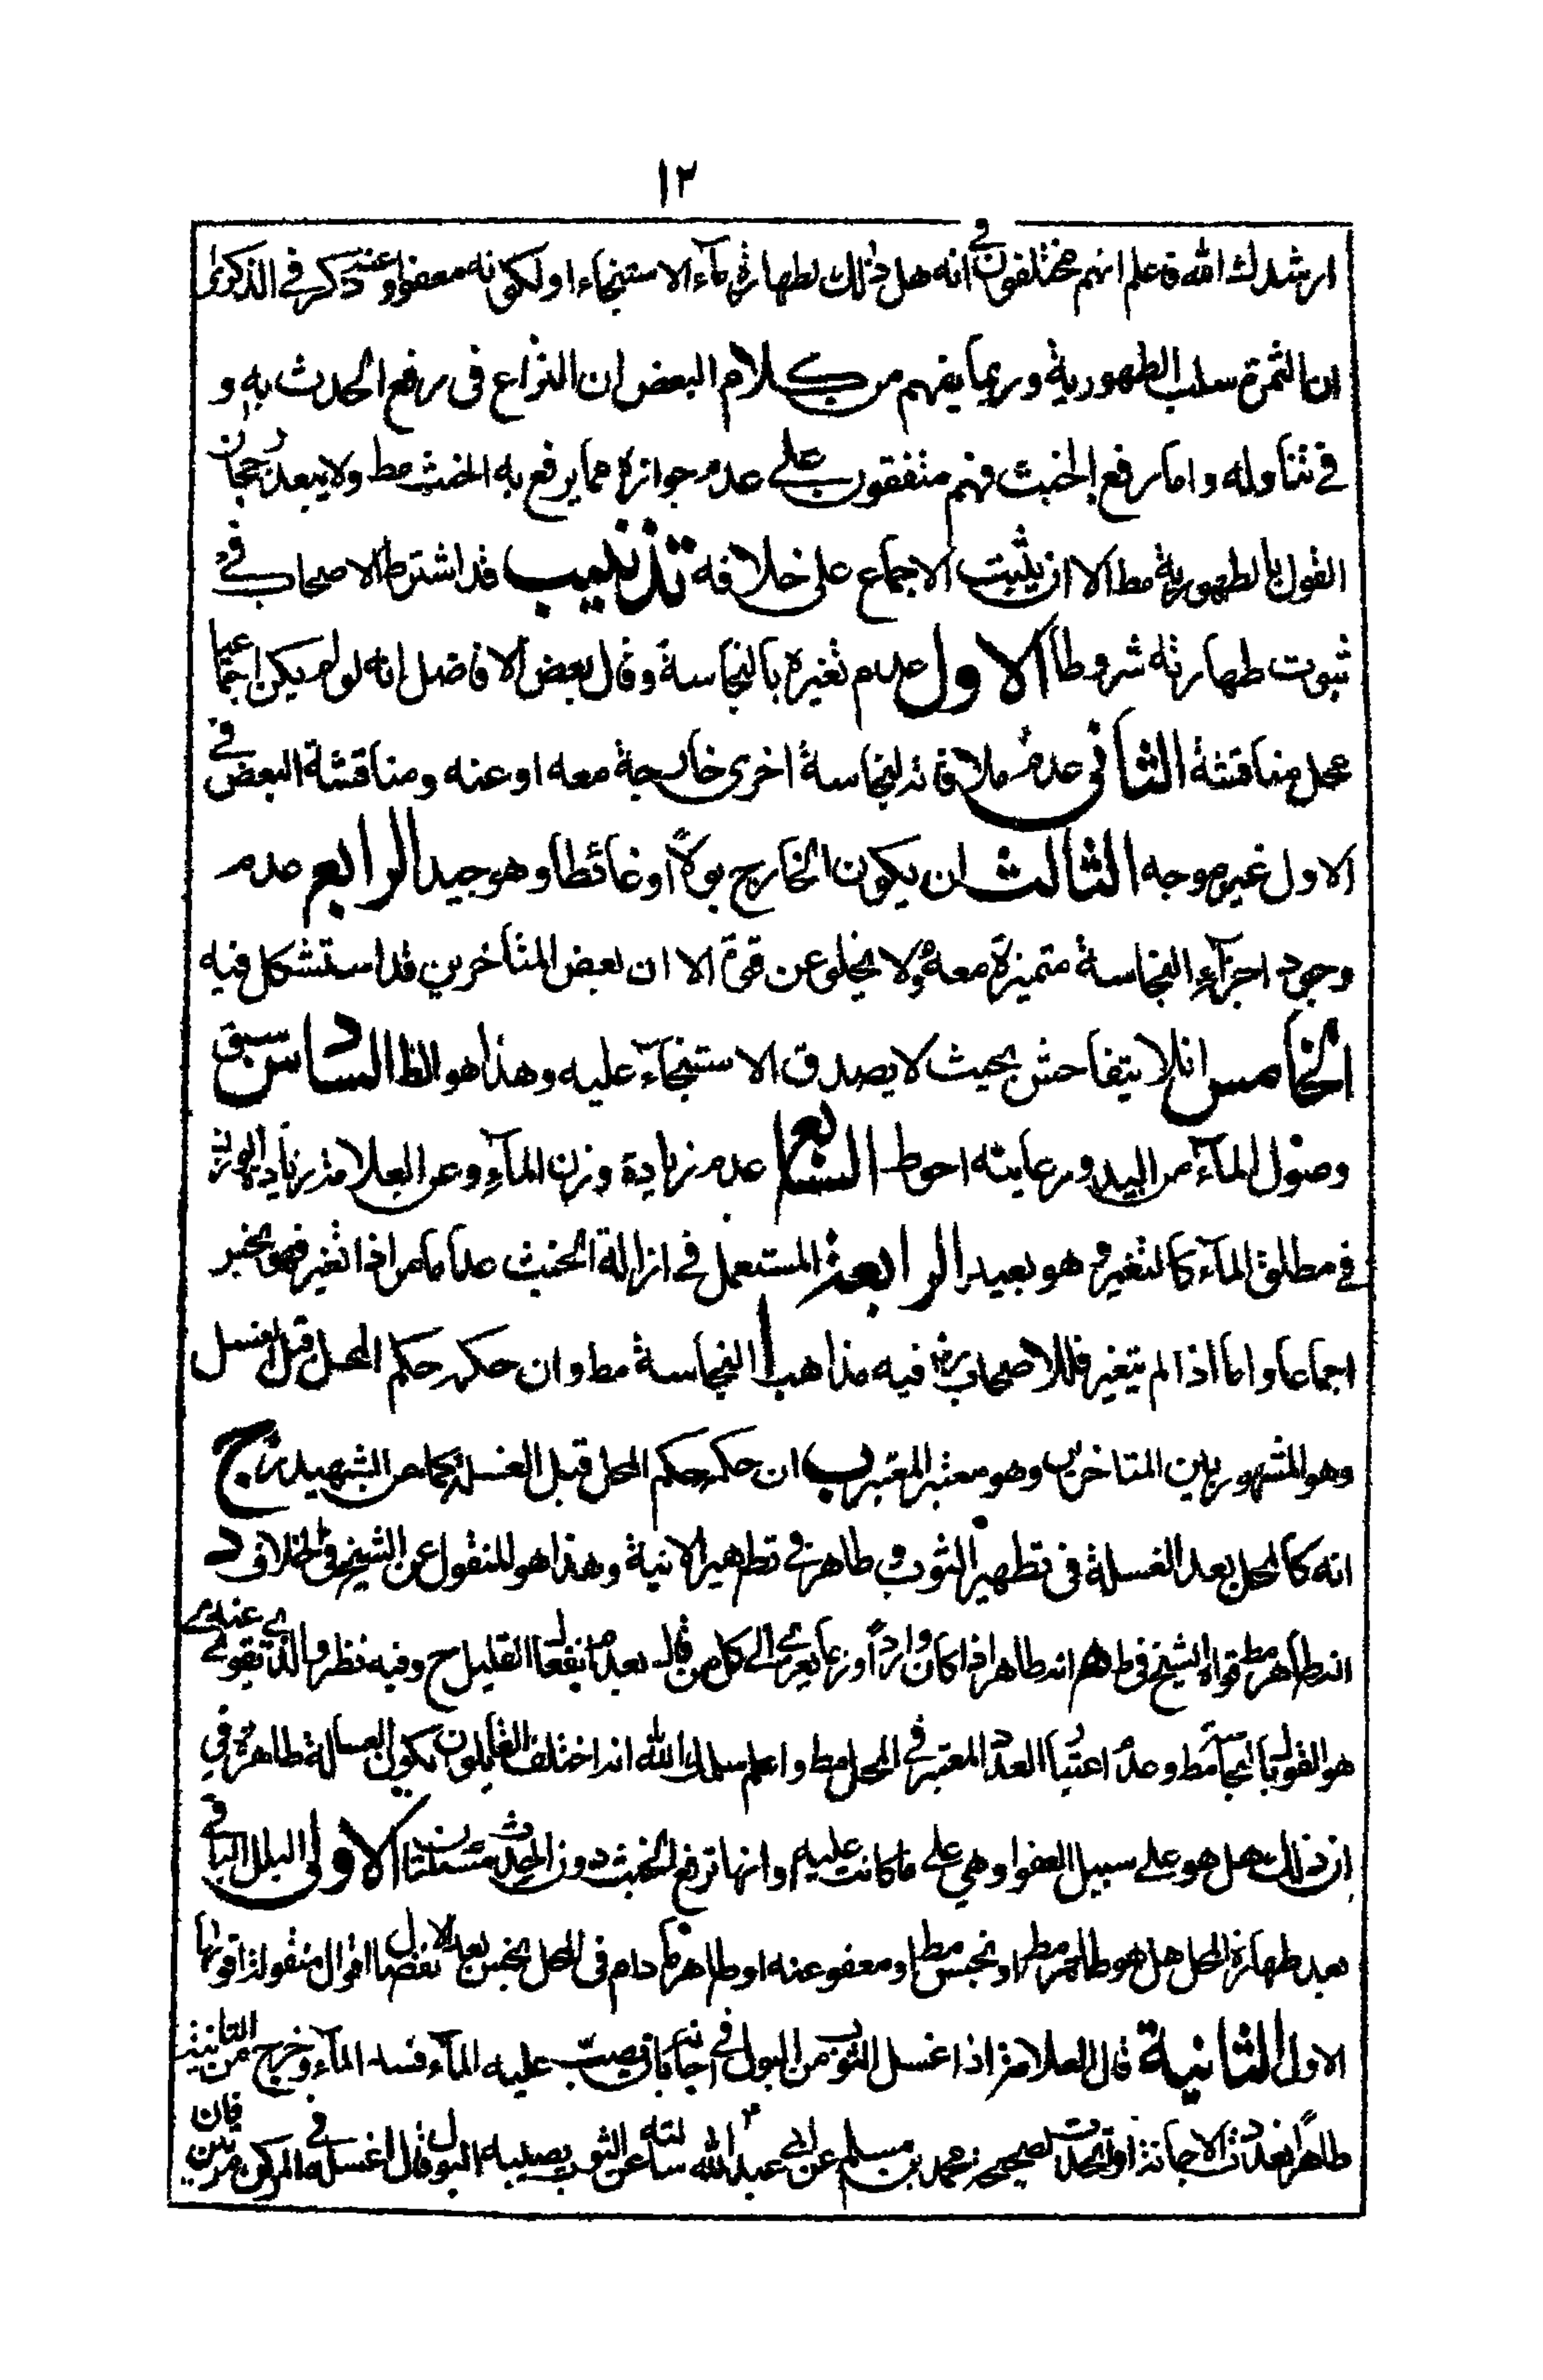 ١٣
ارشدك الله فاعلم انهم مختلفون في انه هل ذلك لطهارة ماء الاستنجاء او لكونه معفوا عنه وذكر في الذكرى
ان الثمرة سلب الطهورية وربما يفهم من كلام البعض ان النزاع فى رفع الحدث به و
في تناوله واما رفع الخبث فهم متفقون على عدم جوازه مما يرفع به الخبث مط ولا يبعد رجحان
القول بالطهورية مط الا ان يثبت الاجماع على خلافه تذنيب قد اشترط الاصحاب في
ثبوت طهارته شروطا الاول عدم تغيره بالنجاسة وقال بعض الافاضل انه لو لم يكن اجماعيا
محل مناقشة الثاني عدم ملاقاته لنجاسة اخرى خارجة معه او عنه ومناقشة البعض في
الاول غير موجه الثالث ان يكون الخارج بولاً او غائطا وهو جيد الرابع عدم
وجود اجزآء النجاسة متميزة معه ولا يخلو عن قوة الا ان بعض المتأخرين قد استشكل فيه
الخامس ان لا يتفاحش بحيث لا يصدق الاستنجآء عليه وهذا هو الظ السادس سبق
وصول المآء من اليد ورعايته احوط السابع عدم زيادة وزن المآء وعن العلامة زيادة الوزن
في مطلق المآء كالتغير وهو بعيد الرابعة المستعمل في ازالة الخبث عدا ما مر اذا تغير فهو نجس
اجماعا واما اذا لم يتغير فللاصحاب فيه مذاهب ا النجاسة مط وان حكمه حكم المحل قبل الغسل
وهو المشهور بين المتاخرين وهو معتبر المعتبر ب ان حكمه حكم المحل قبل الغسلة كما عن الشهيد ج
انه كالمحل بعد الغسلة فى تطهير الثوب وطاهر في تطهير الانية وهذا هو المنقول عن الشيخ في الخلاف د
انه طاهر مط قواه الشيخ في ط ه انه طاهر اذا كان وارداً وربما يعزى الى كل من قال بعدم انفعال القليل ح وفيه نظر والذي يقوى عندي
هو القول بالنجاسة مط وعدم اعتبار العدد المعتبر في المحل مط واعلم سلمك الله انه اختلف القائلون بكون الغسالة طاهرة في
ان ذلك هل هو على سبيل العفو او هي على ما كانت عليه وانها ترفع الخبث دون الحدث مسئلتان الاولى البلل الباقي
بعد طهارة المحل هل هو طاهر مط او نجس مط او معفو عنه او طاهر ما دام فى المحل نجس بعد الانفصال اقوال منقولة اقواها
الاول الثانية قال العلامة اذا غسل الثوب من البول في اجانة بان يصب عليه المآء فسد المآء وخرج من الثانية
طاهراً تعددت الاجانة او اتحدت لصحيحة محمد بن مسلم عن ابي عبد الله سالته عن الثوب يصيبه البول قال اغسله في المركن مرتين فان